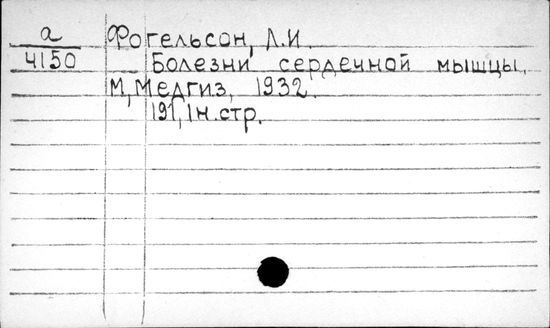 а Фогельсон, Л.И.
4150 Болезни сердечной мышцы.
М, Медгиз, 1932.
191, 1н.стр.